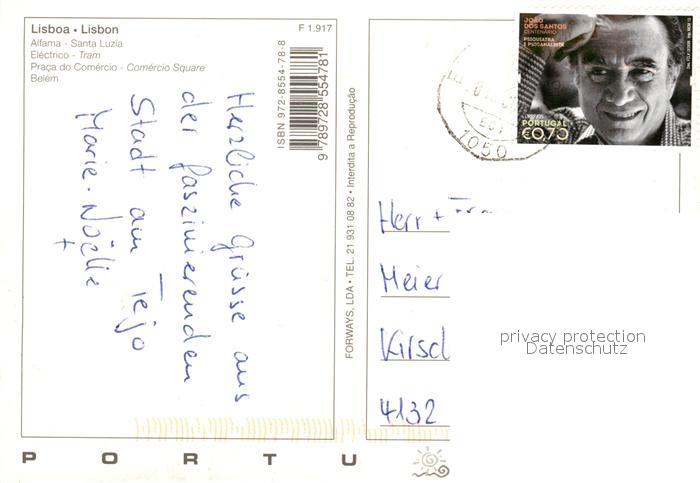 Lisboa • Lisbon
F 1.917
Alfama - Santa Luzia
Eléctrico - Tram
Praça do Comércio - Comércio Square
Belém
ISBN 972-8554-78-8
9 789728 554781
Herzliche Grüsse aus
der faszinierenden
Stadt am Tejo
Marie-Noëlle
FORWAYS, LDA • TEL. 21 931 08 82 • Interdita a Reprodução
JOÃO
DOS SANTOS
CENTENÁRIO
PSIQUIATRA
E PSICANALISTA
PORTUGAL
€0,70
1050
Herr + Frau
Meier
Kirsch
4132
privacy protection
Datenschutz
P O R T U